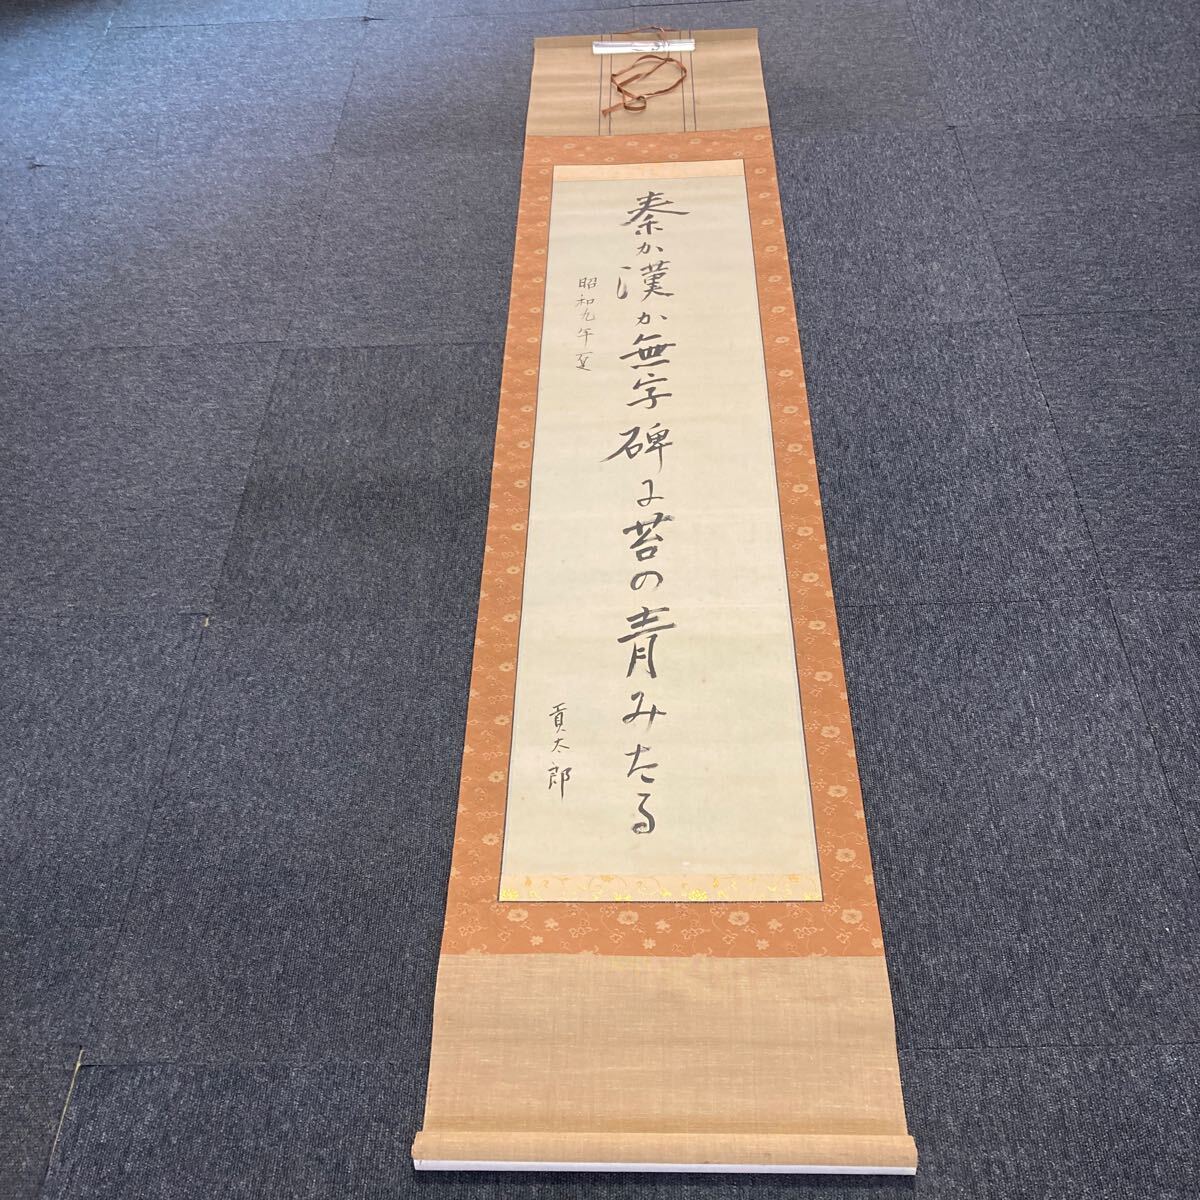 秦か漢か無字碑に苔の青みたる
昭和九年夏
貢太郎